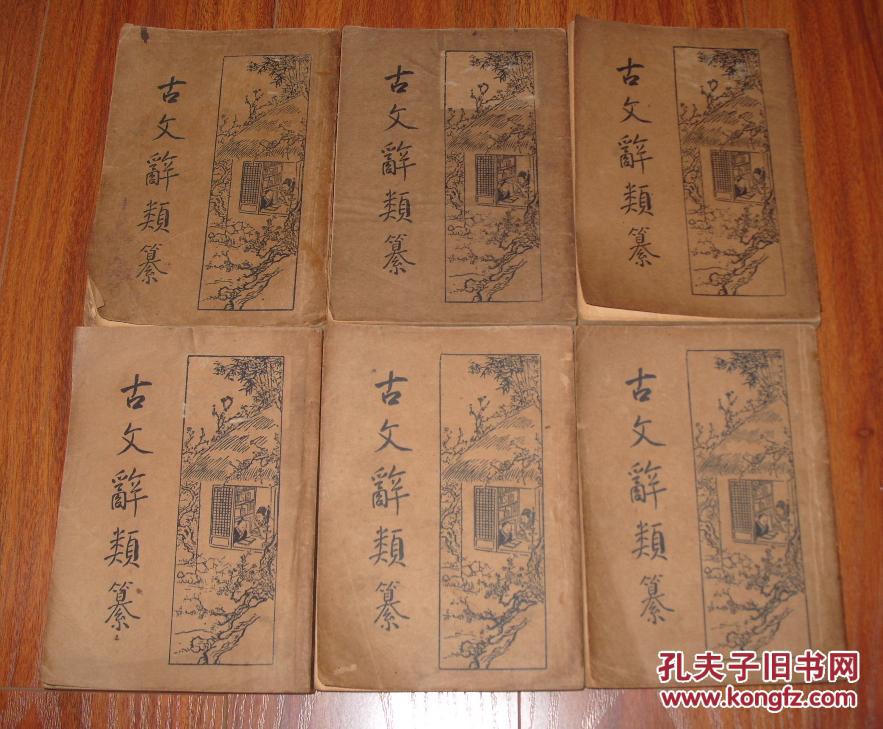 古文辭類纂
古文辭類纂
古文辭類纂
古文辭類纂
古文辭類纂
古文辭類纂
孔夫子旧书网
www.kongfz.com